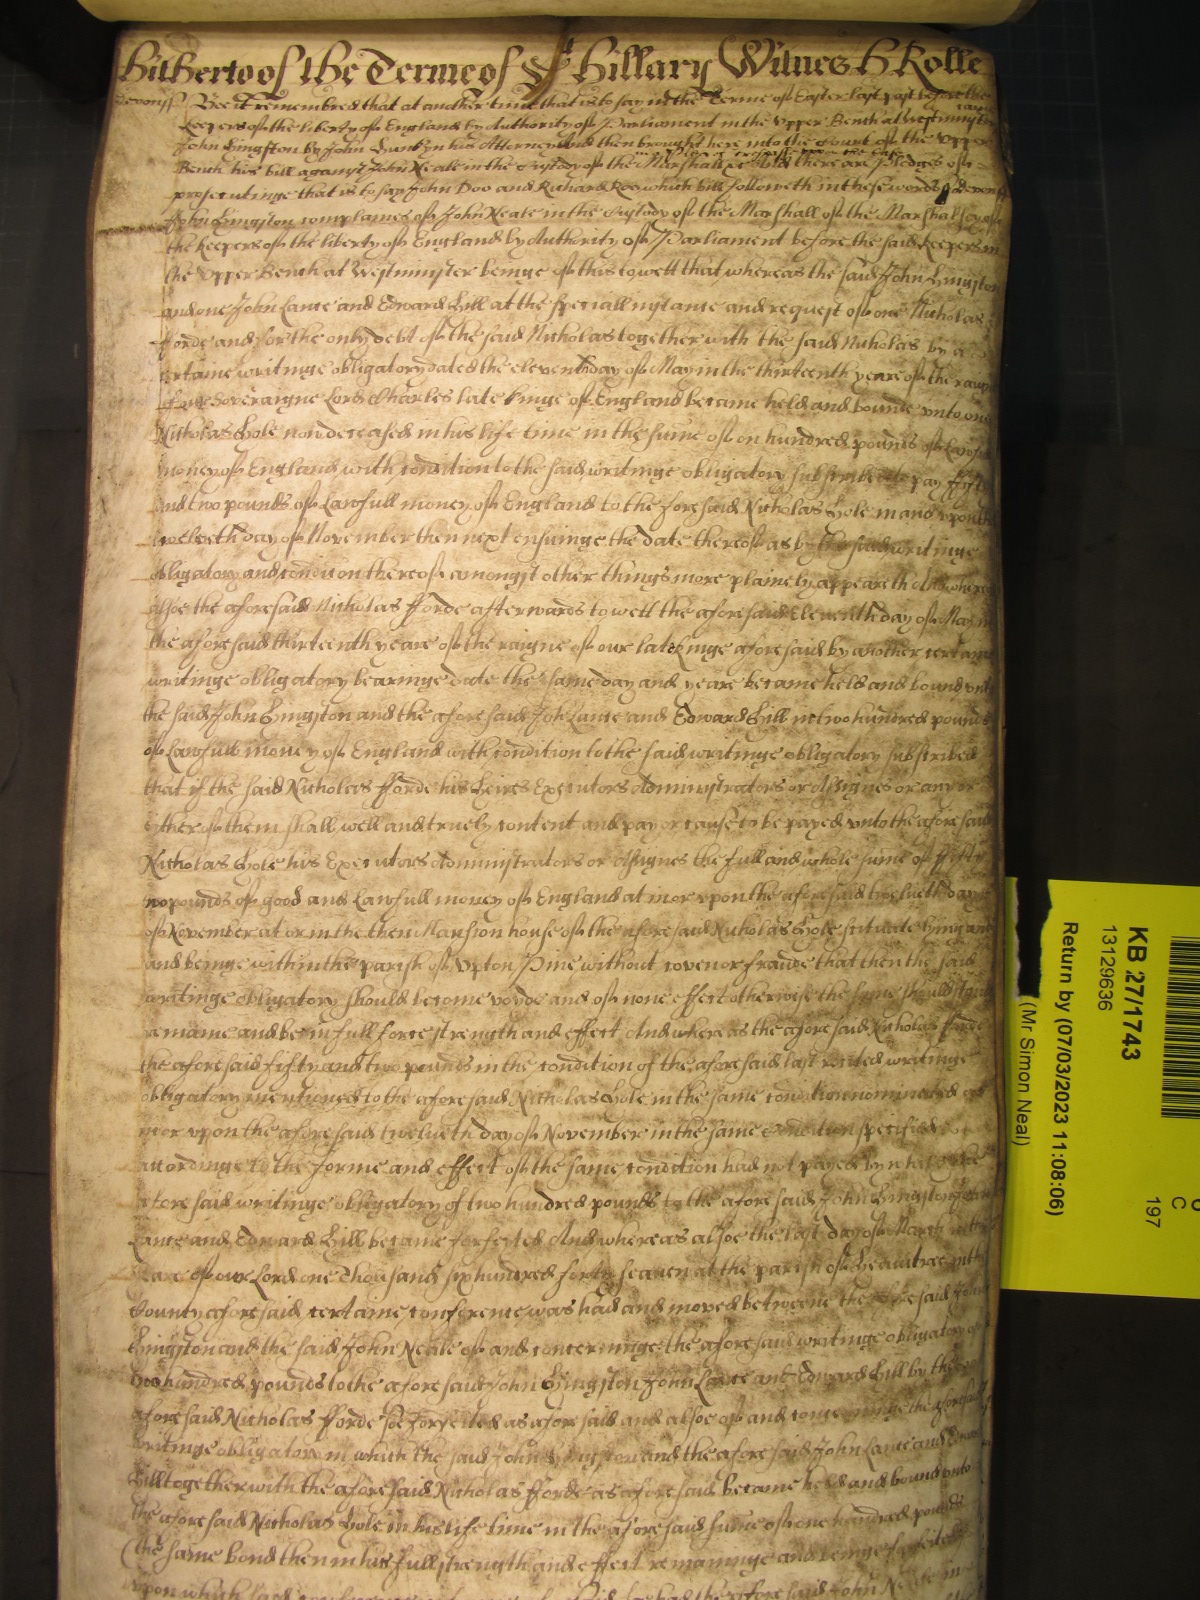 hitherto of the Terme of St Hillary Witnes H Rolle
Devon ss Bee it remembred that at another time that is to say in the Terme of Easter last past before the
Keepers of the liberty of England by Authority of Parliament in the Upper Bench at Westminster came
John Hingston by John his Attorney And then brought here into the Court of the Upper
Bench his bill against John Neale in the Custody of the Marshall &c And there are Pledges of
prosecutinge that is to say John Doo and Richard Roe which bill followeth in these words ss Devon ss
John Hingston complaines of John Neale in the Custody of the Marshall of the Marshalsey of
the Keepers of the liberty of England by Authority of Parliament before the said Keepers in
the Upper Bench at Westminster beinge of this to witt that whereas the said John Hingston
and one John Lance and Edward Hill at the speciall instance and request of one Nicholas
Forde and for the only debt of the said Nicholas together with the said Nicholas by a
certaine writinge obligatory dated the eleventh day of May in the thirteenth yeare of the raigne
of our Soveraigne Lord Charles late kinge of England became held and bound unto one
Nicholas Hole now deceased in his life time in the sume of on hundred pounds of Lawfull
money of England with condition to the said writinge obligatory subscribed to pay fifty
and two pounds of Lawfull money of England to the foresaid Nicholas Hole in and upon the
twelveth day of November then next ensuinge the date thereof as by the said writinge
obligatory and condicon thereof amongst other things more plainely appeareth And whereas
alsoe the aforesaid Nicholas fforde afterwards to witt the aforesaid Eleventh day of May in
the aforesaid thirteenth yeare of the raigne of our late kinge aforesaid by another certaine
writinge obligatory bearinge date the same day and yeare became held and bound unto
the said John Hingston and the aforesaid John Lance and Edward Hill in two hundred pounds
of Lawfull money of England with condition to the said writinge obligatory subscribed
that if the said Nicholas fforde his heires Executors Administrators or Assignes or any or
either of them shall well and truely content and pay or cause to be payed unto the aforesaid
Nicholas Hole his Executors Administrators or Assignes the full and whole sume of fifty
two pounds of good and Lawfull money of England at in or upon the aforesaid twelueth day
of November at or in the then Mansion house of the aforesaid Nicholas Hole situate lying and
and beinge within the parish of Upton Pine without coven or fraude that then the said
writinge obligatory should become voyde and of none effect otherwise the same should stand
remaine and be in full force strength and effect And whereas the aforesaid Nicholas fforde
the aforesaid fifty and two pounds in the condition of the aforesaid last recited writinge
obligatory mentioned to the aforesaid Nicholas Hole in the same condition nominated att
in or upon the aforesaid twelueth day of November in the same Condition specified
accordinge to the forme and effect of the same condition had not payed by which the
aforesaid writinge obligatory of two hundred pounds to the aforesaid John Hingston John
Lance and Edward Hill became forfeited And whereas alsoe the last day of March in the
Yeare of our Lord one Thousand six hundred forty seaven at the parish of Heavitree in the
County aforesaid certaine conference was had and moved betweene the aforesaid John
Hingston and the said John Neale of and concerninge the aforesaid writinge obligatory of
two hundred pounds to the aforesaid John Hingston John Lance and Edward Hill by the
aforesaid Nicholas fforde soe forfeited as aforesaid and alsoe of and concerninge the aforesaid
writinge obligatory in which the said John Hingston and the aforesaid John Lance and Edward
Hill together with the aforesaid Nicholas fforde as aforesaid became held and bound unto
the aforesaid Nicholas Hole in his life time in the aforesaid sume of one hundred pounds
(the same bond then in his full strength and effect remaininge and beinge forfeited
upon which said John Neale in
KB 27/1743
13129636
Return by (07/03/2023 11:08:06)
(Mr Simon Neal)
C
197